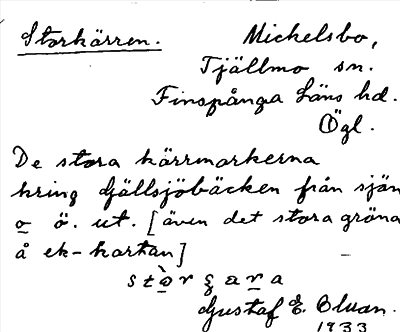 Storkärren.
Michelsbo,
Tjällmo sn.
Finspånga läns hd.
Ögl.
De stora kärrmarkerna
kring Gjällsjöbäcken från sjön
o ö. ut. [även det stora gröna
å ek-kartan]
Gustaf E. Bluan.
1933